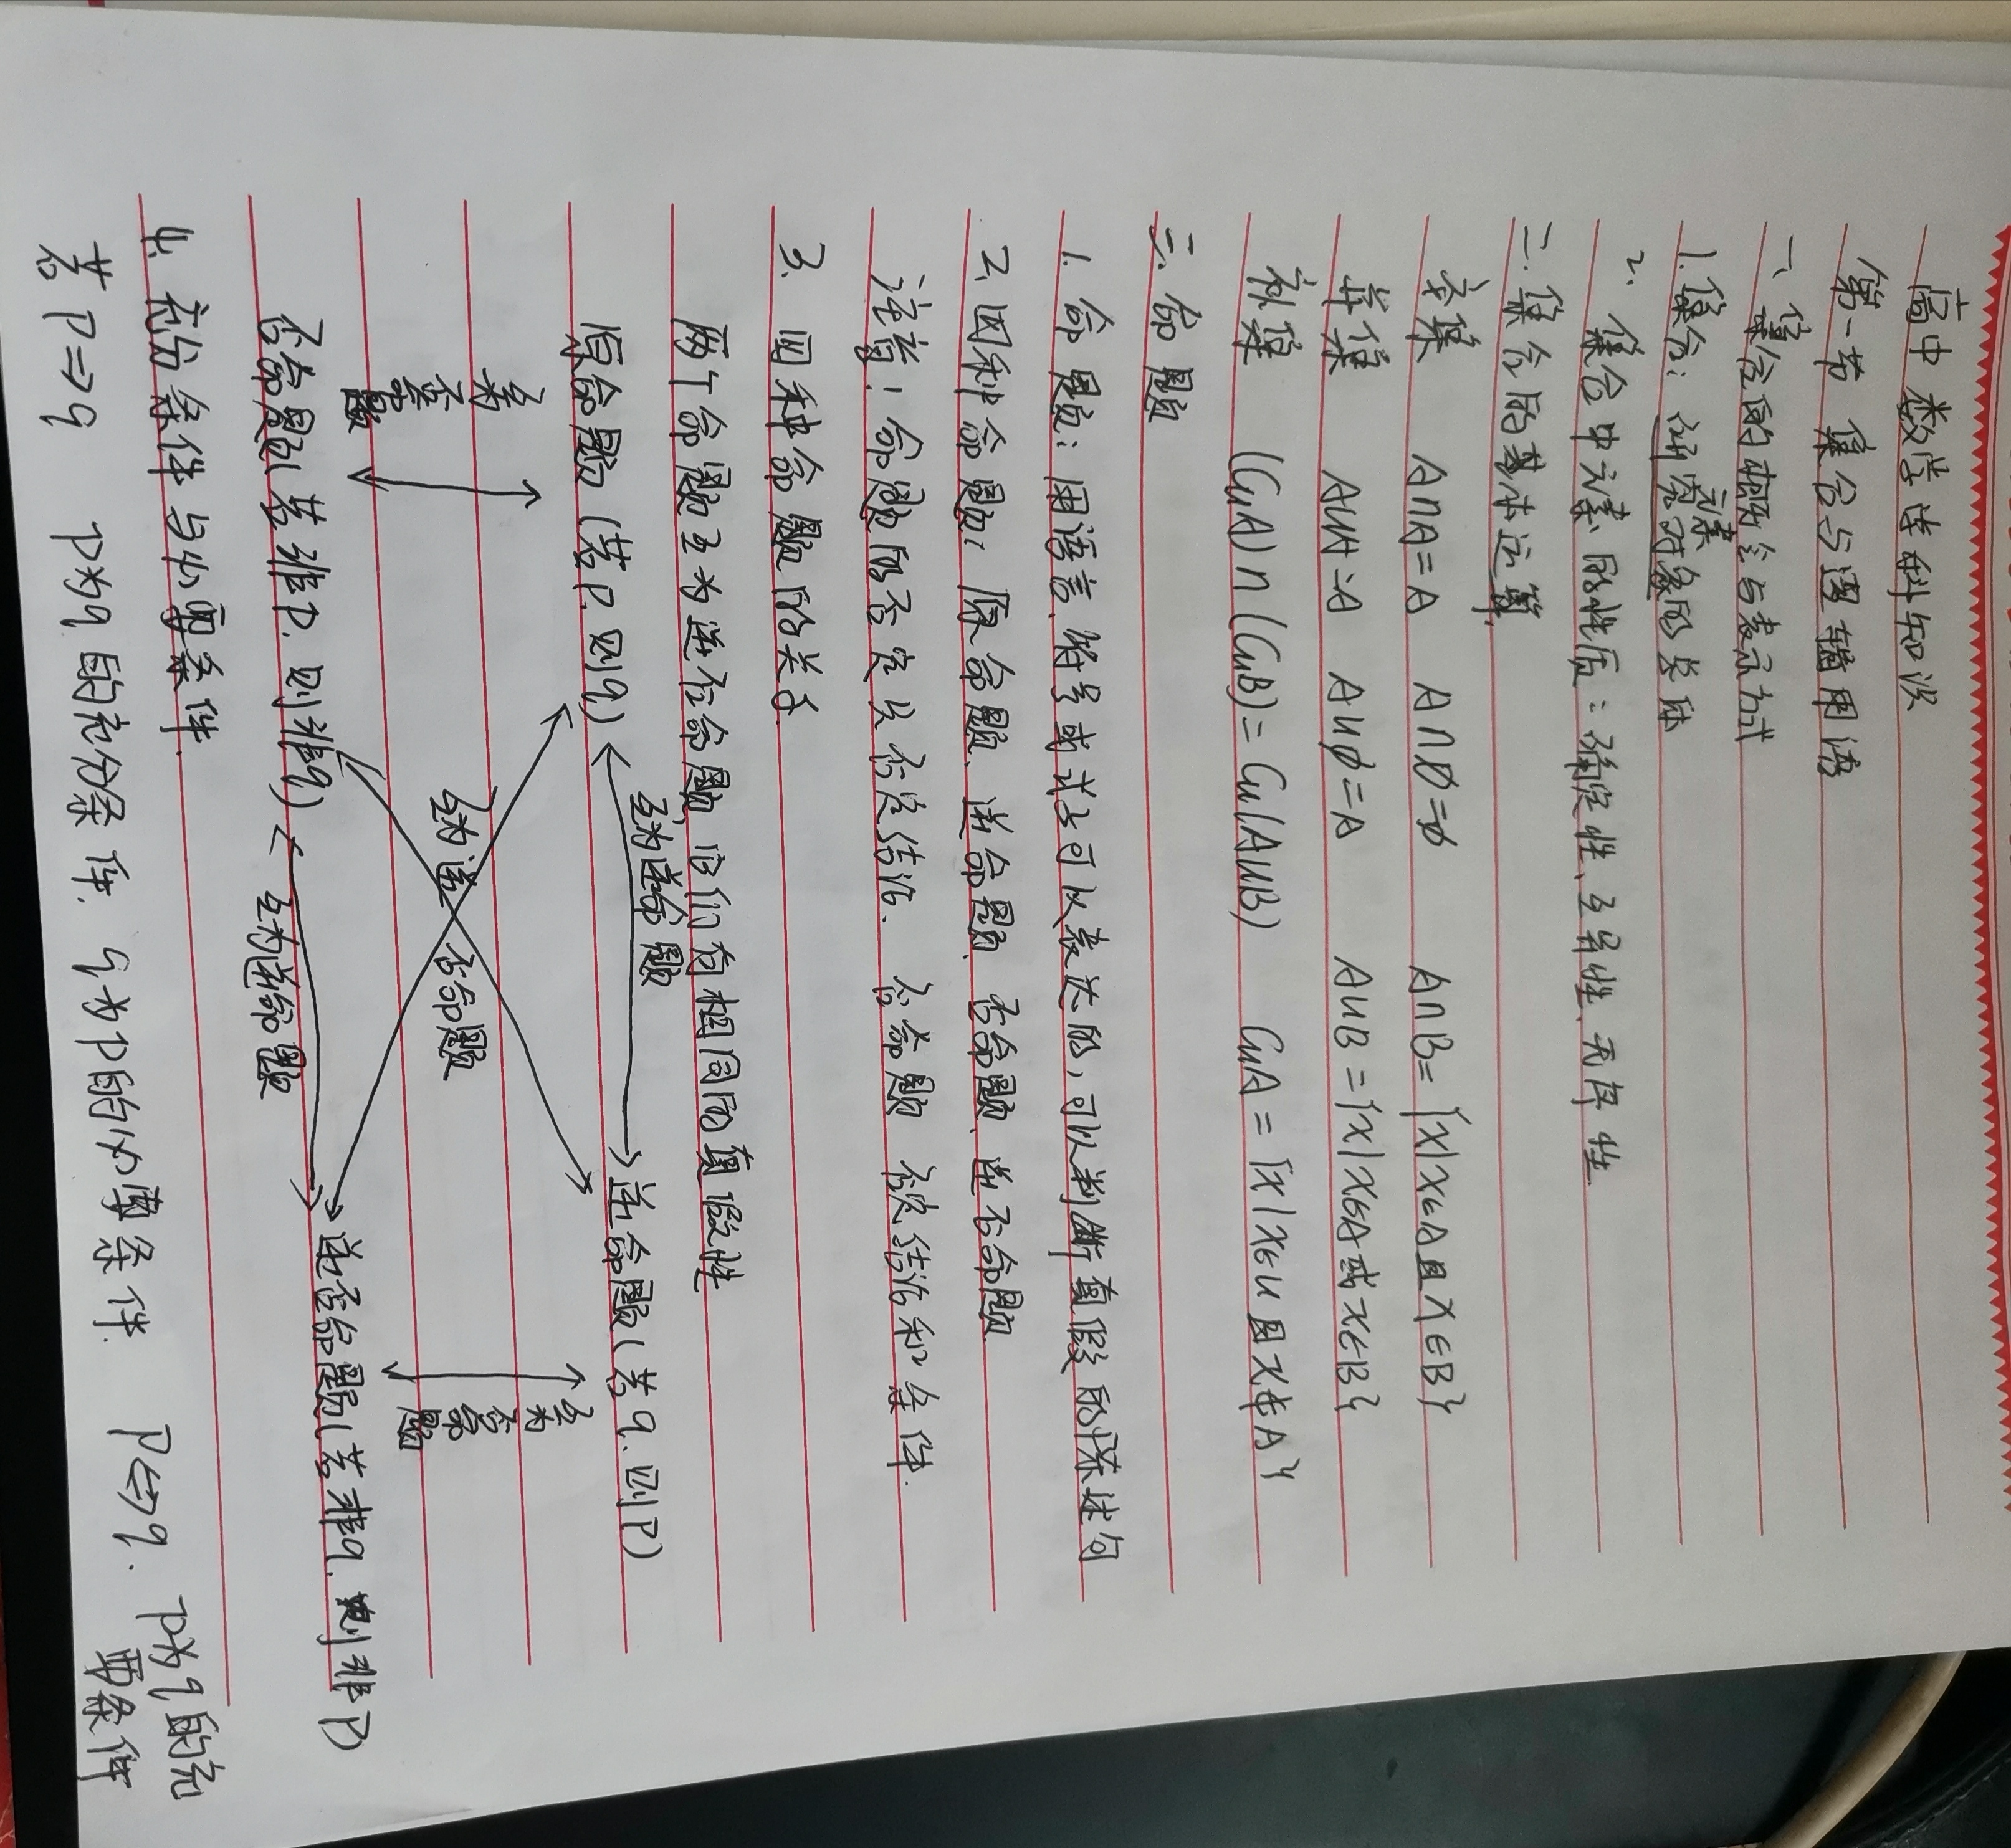 高中数学学科知识
第一节 集合与逻辑用语
一、集合的概念与表示方式
1.集合：研究对象的总体
元素
2、集合中元素的性质：确定性、互异性、无序性
二.集合的基本运算
交集 A∩A=A A∩∅=∅ A∩B={x|x∈A且x∈B}
并集 A∪A=A A∪∅=A A∪B={x|x∈A或x∈B}
补集 (CuA)∩(CuB)=Cu(A∪B) CuA={x|x∈u且x∉A}
三.命题
1.命题：用语言、符号或式子可以表达的,可以判断真假的陈述句
2.四种命题：原命题、逆命题、否命题、逆否命题
注意！命题的否定只否定结论. 否命题 否定结论和条件.
3.四种命题的关系
两个命题互为逆否命题,它们有相同的真假性
互为逆命题
原命题(若P.则q) 逆命题(若q.则P)
互为否命题 互为逆否命题 互为否命题
否命题(若非P.则非q) 逆否命题(若非q.则非P)
互为逆命题
4.充分条件与必需条件
若P⇒q P为q的充分条件. q为P的必需条件. P⇔q. P为q的充
要条件